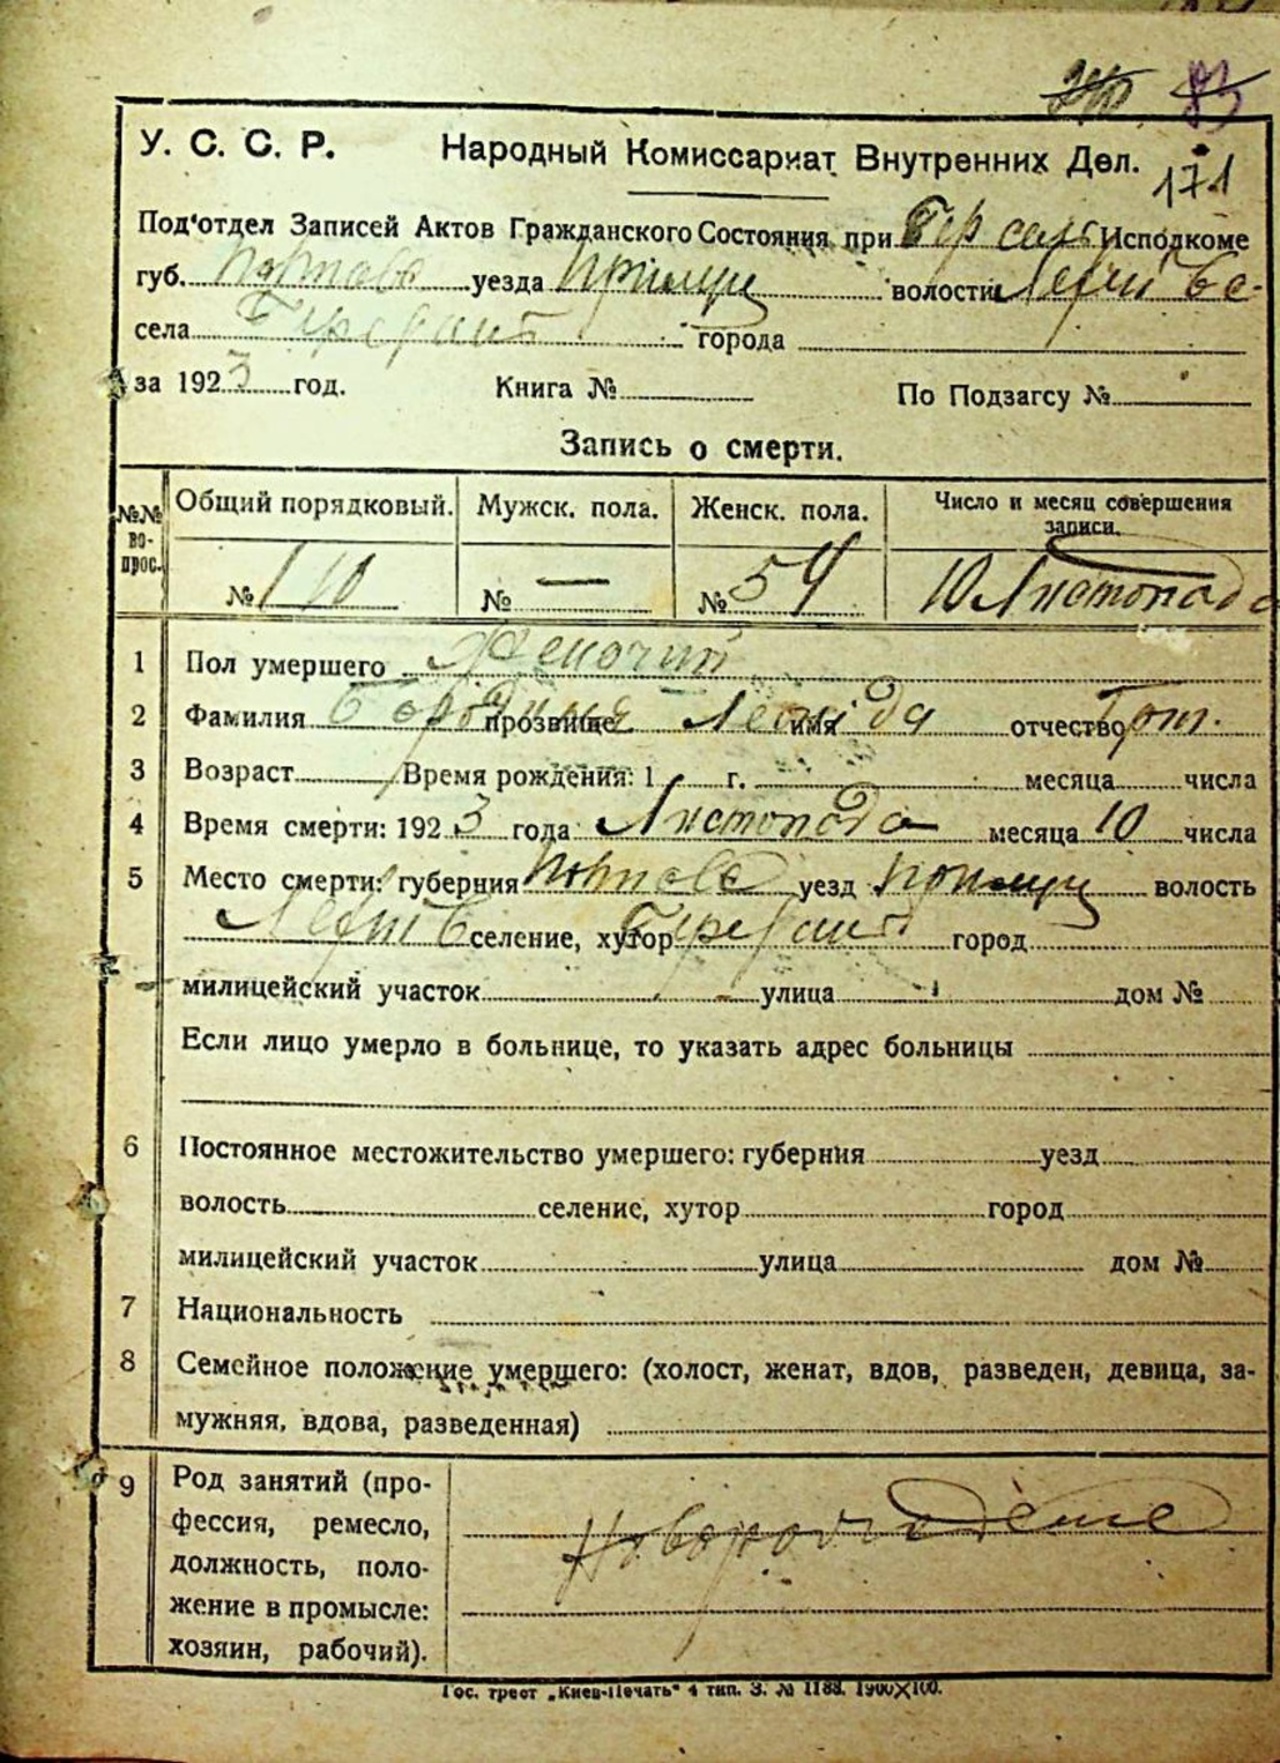 83
У. С. С. Р. Народный Комиссариат Внутренних Дел.
171
Под'отдел Записей Актов Гражданского Состояния при Исполкоме
губ. Полтавс уезда Прилуц волости
села города
за 1923 год. Книга № По Подзагсу №
Запись о смерти.
№№ вопрос. Общий порядковый. Мужск. пола. Женск. пола. Число и месяц совершения записи.
№ 110 № — № 54 10 Листопада
1 Пол умершего Жіночий
2 Фамилия прозвище Леоніда имя отчество Гри.
3 Возраст Время рождения: 1 г. месяца числа
4 Время смерти: 1923 года Листопада месяца 10 числа
5 Место смерти: губерния Полтавс уезд Прилуц волость
селение, хутор город
милицейский участок улица дом №
Если лицо умерло в больнице, то указать адрес больницы
6 Постоянное местожительство умершего: губерния уезд
волость селение, хутор город
милицейский участок улица дом №
7 Национальность
8 Семейное положение умершего: (холост, женат, вдов, разведен, девица, за-
мужняя, вдова, разведенная)
9 Род занятий (про-
фессия, ремесло,
должность, поло-
жение в промысле:
хозяин, рабочий).
Гос. трест „Киев-Печать" 4 тип. З. № 1188. 1900×100.